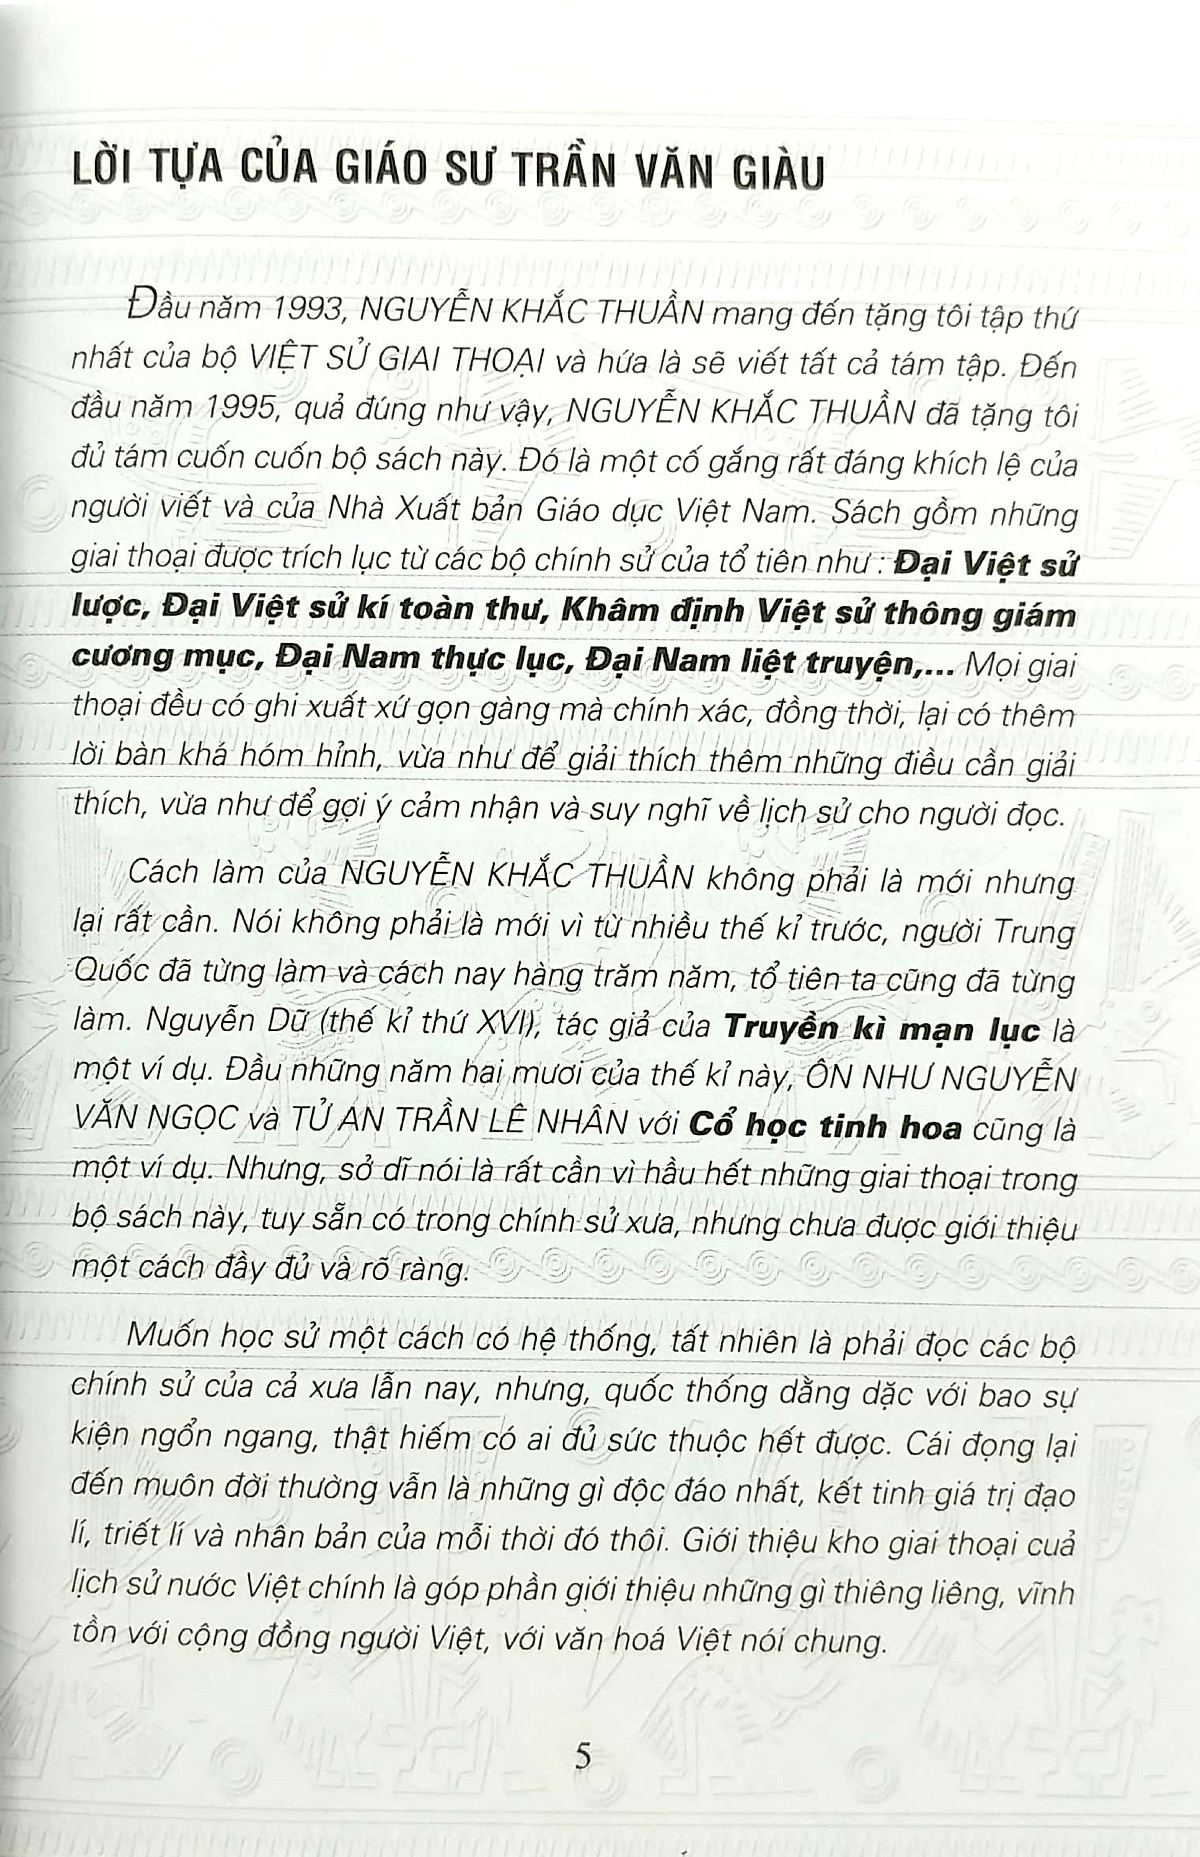 LỜI TỰA CỦA GIÁO SƯ TRẦN VĂN GIÀU
Đầu năm 1993, NGUYỄN KHẮC THUẦN mang đến tặng tôi tập thứ
nhất của bộ VIỆT SỬ GIAI THOẠI và hứa là sẽ viết tất cả tám tập. Đến
đầu năm 1995, quả đúng như vậy, NGUYỄN KHẮC THUẦN đã tặng tôi
đủ tám cuốn cuốn bộ sách này. Đó là một cố gắng rất đáng khích lệ của
người viết và của Nhà Xuất bản Giáo dục Việt Nam. Sách gồm những
giai thoại được trích lục từ các bộ chính sử của tổ tiên như : Đại Việt sử
lược, Đại Việt sử kí toàn thư, Khâm định Việt sử thông giám
cương mục, Đại Nam thực lục, Đại Nam liệt truyện,... Mọi giai
thoại đều có ghi xuất xứ gọn gàng mà chính xác, đồng thời, lại có thêm
lời bàn khá hóm hỉnh, vừa như để giải thích thêm những điều cần giải
thích, vừa như để gợi ý cảm nhận và suy nghĩ về lịch sử cho người đọc.
Cách làm của NGUYỄN KHẮC THUẦN không phải là mới nhưng
lại rất cần. Nói không phải là mới vì từ nhiều thế kỉ trước, người Trung
Quốc đã từng làm và cách nay hàng trăm năm, tổ tiên ta cũng đã từng
làm. Nguyễn Dữ (thế kỉ thứ XVI), tác giả của Truyền kì mạn lục là
một ví dụ. Đầu những năm hai mươi của thế kỉ này, ÔN NHƯ NGUYỄN
VĂN NGỌC và TỬ AN TRẦN LÊ NHÂN với Cổ học tinh hoa cũng là
một ví dụ. Nhưng, sở dĩ nói là rất cần vì hầu hết những giai thoại trong
bộ sách này, tuy sẵn có trong chính sử xưa, nhưng chưa được giới thiệu
một cách đầy đủ và rõ ràng.
Muốn học sử một cách có hệ thống, tất nhiên là phải đọc các bộ
chính sử của cả xưa lẫn nay, nhưng, quốc thống dằng dặc với bao sự
kiện ngổn ngang, thật hiếm có ai đủ sức thuộc hết được. Cái đọng lại
đến muôn đời thường vẫn là những gì độc đáo nhất, kết tinh giá trị đạo
lí, triết lí và nhân bản của mỗi thời đó thôi. Giới thiệu kho giai thoại cuả
lịch sử nước Việt chính là góp phần giới thiệu những gì thiêng liêng, vĩnh
tồn với cộng đồng người Việt, với văn hoá Việt nói chung.
5